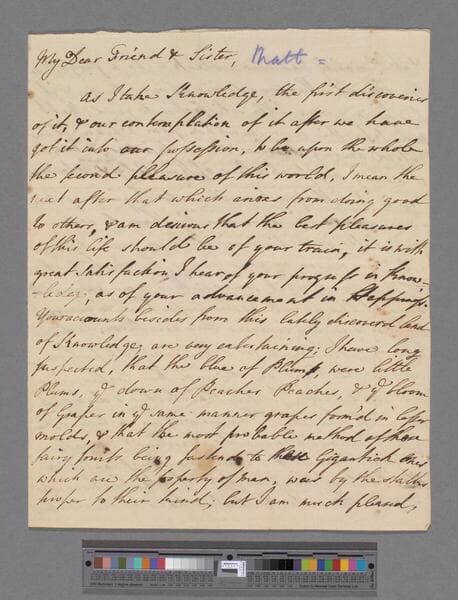 My Dear Friend & Sister, Matt =
As I take Knowledge, the first discoveries
of it, & our contemplation of it after we have
got it into our possession, to be upon the whole
the second pleasure of this world, I mean the
next after that which arises from doing good
to others, & am desirous that the best pleasures
of this life should be of your train, it is with
great Satisfaction, I hear of your progress in Know-
-ledge, as of your advancement in Happiness.
Your accounts besides from this lately discovered land
of Knowledge, are very entertaining; I have long
suspected, that the blue of Plums, were little
Plums, ye down of Peaches Peaches, & ye bloom
of Grapes in ye same manner grapes form'd in lesser
molds, & that the most probable method of these
fairy fruits being fastend to Gigantick ones
which are the property of man, was by the stalks
proper to their kind; but I am much pleased,